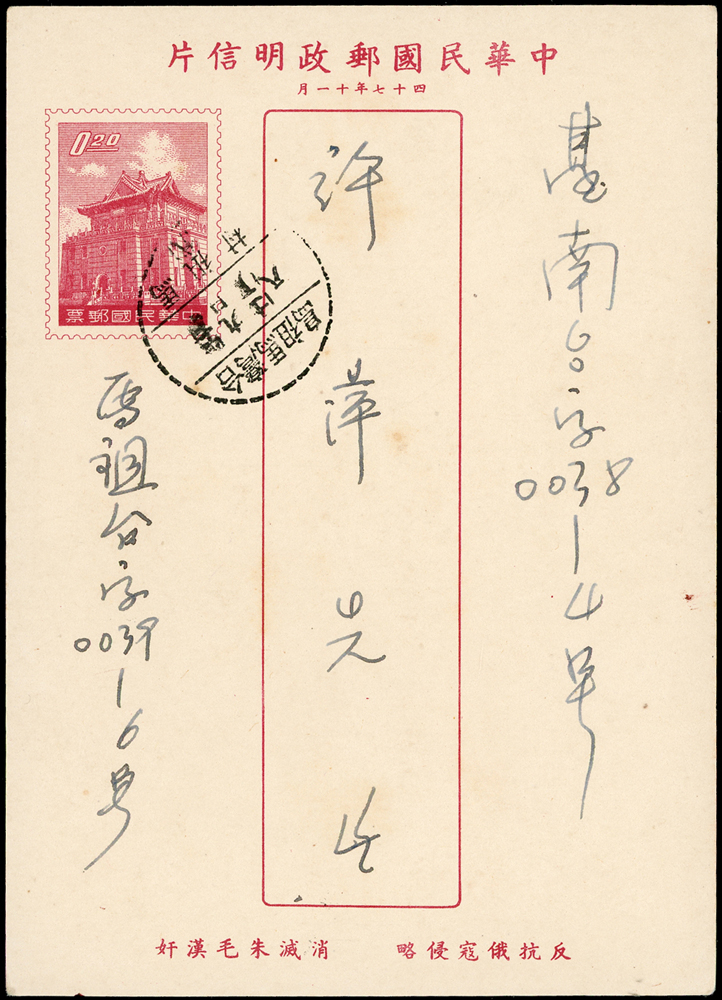 中華民國郵政明信片
四十七年十一月
0.20
中華民國郵票
臺南台字
0038
14號
許萍先生
馬祖台字
0039
16号
台灣馬祖
反抗俄寇侵略　消滅朱毛漢奸